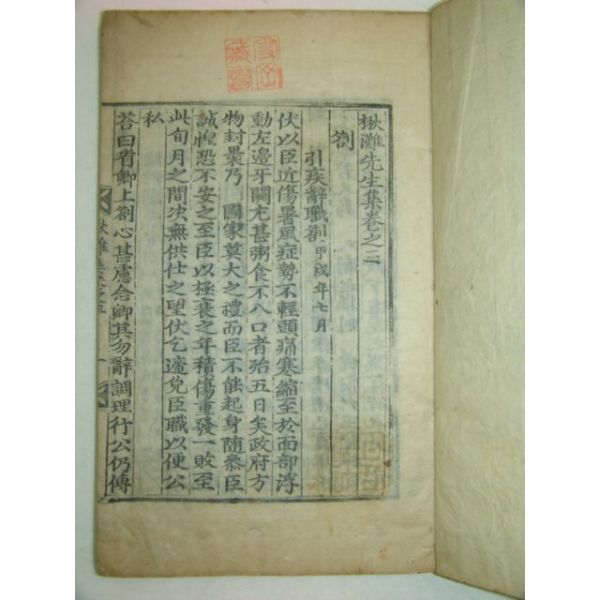 楸灘先生集卷之二
劄
引疾辭職劄 甲戌年七月
伏以臣近傷暑風症勢不輕頭痛寒縮至於面部浮
動左邊牙關尤甚粥食不入口者殆五日矣政府方
物封裹乃 國家莫大之禮而臣不能起身隨參臣
誠惶恐不安之至臣以極衰之年積傷重發一敗至
此旬月之間决無供仕之望伏乞遞免臣職以便公
私
荅曰省卿上劄心甚慮念卿其勿辭調理行公仍傳